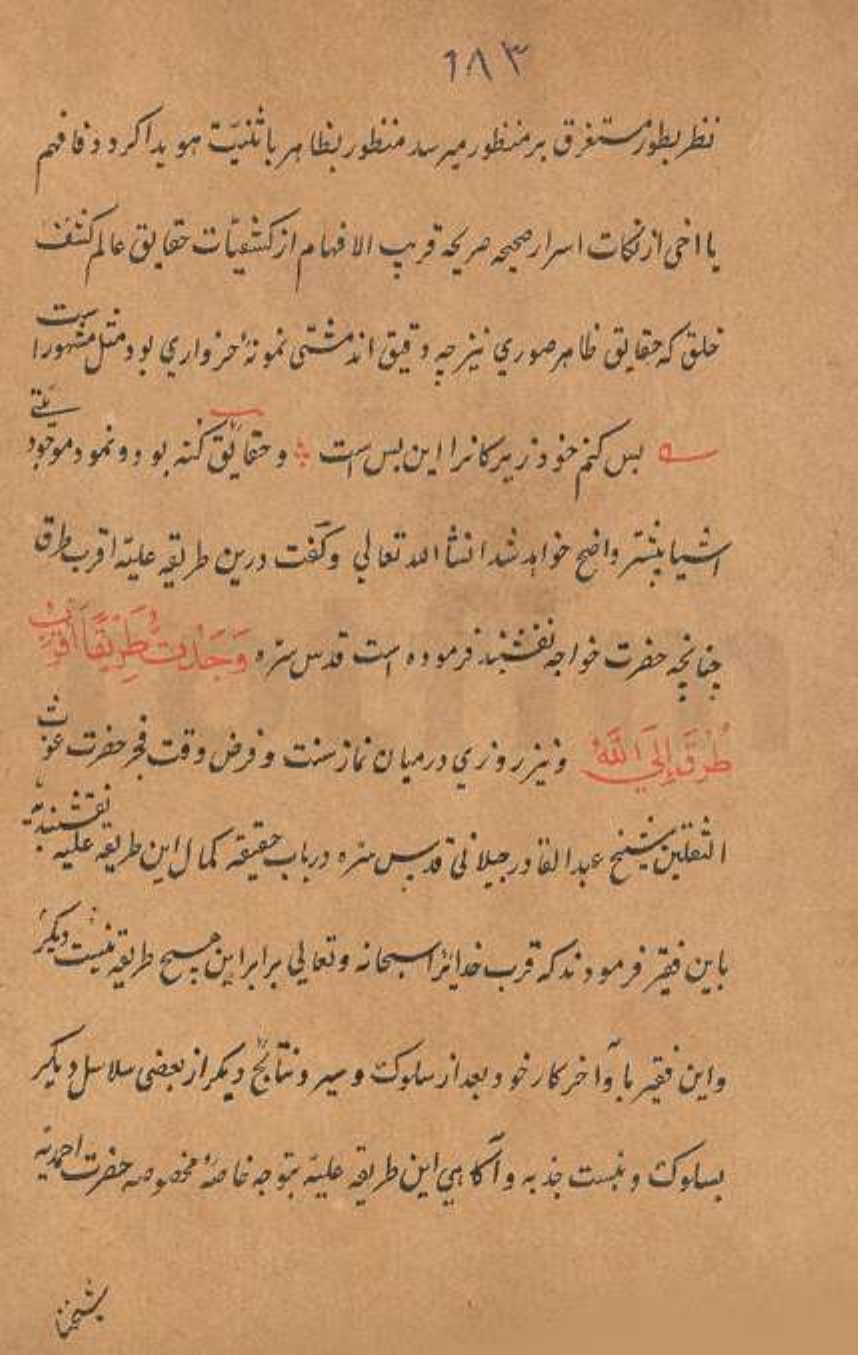 ۱۸۳
نظر بطور مستغرق بر منظور میرسد منظور بظاهر باثنیّت هویدا کردد فافهم
یا اخی از نکات اسرار صحیحه صریحه قریب الافهام از کشفیّات حقایق عالم کشف
خلق که حقایق ظاهر صوری نیز چه دقیق اند مشتی نمونهٔ خرواری بود مثل مشهور است
بس کنم خود زیرکانرا این بس است و حقایق کنه بود و نمود موجود
اشیا بیشتر واضح خواهد شد انشا الله تعالی و گفت درین طریقه علیّه اقرب طرق
چنانچه حضرت خواجه نقشبند فرموده است قدس سرّه وَجَدْتُ طَرِیْقًا اَقْرَبُ
طُرُقٍ اِلَی اللّٰهِ و نیز روزی درمیان نماز سنت و فرض وقت فجر حضرت غوث
الثقلین شیخ عبدالقادر جیلانی قدس سره در باب حقیقه کمال این طریقه علیه نقشبندیه
باین فقیر فرمودند که قرب خدایرا سبحانه وتعالی برابر این هیچ طریقه نیست دیگر
و این فقیر با آخر کار خود بعد از سلوک و سیر و نتایج دیگر از بعضی سلاسل دیگر
بسلوک و نسبت جذبه و آگاهی این طریقه علیّه بتوجه خاصهٔ مخصوصه حضرت احمدیّه
شیخنا